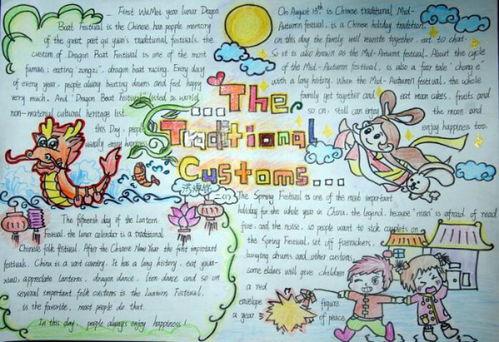 First WuMei year lunar Dragon
Boat Festival is the Chinese han people memory
of the great poet qu yuan's traditional festivals. the
custom of Dragon Boat Festival is one of the most
famous: eating zongzi, dragon boat racing. Every day
of every year, people always beating drums and feel happy
very much. And "Dragon Boat Festival" listed as world
non-material cultural heritage list.
this Day, people
usually enjoy
On August 15th is Chinese traditional Mid-
Autumn festival. is a Chinese holiday tradition.
on this day the family will reunite together. eat to chat.
So it is also known as the Mid-Autumn festival. About the cycle
of the Mid-Autumn festival, is also a fair tale "chang'e"
with a long history. When the Mid-Autumn festival, the whole
family get together and eat moon cakes, fruits and
so on. still can enjoy the moon. and
enjoy happiness too.
...The
Traditional
Customs...
The fifteenth day of the Lantern
Festival. the lunar calendar is a traditional
Chinese folk festival. After the Chinese New Year the first important
festivals. China is a vast country. It has a long history. eat yuan-
xiao, appreciate lanterns, dragon dance, lion dance and so on
several important folk customs is the Lantern Festival.
is the favorite, most people do that.
In this day, people always enjoy happiness!
The Spring Festival is one of the most important
holiday for the whole year in China. the legend, because "nian" is afraid of read
fire and the noise, so people want to stick couplets on
the Spring Festival, set off firecrackers,
hanging drums and other customs.
some elders will give children
a red
envelope figure
a year of peace.